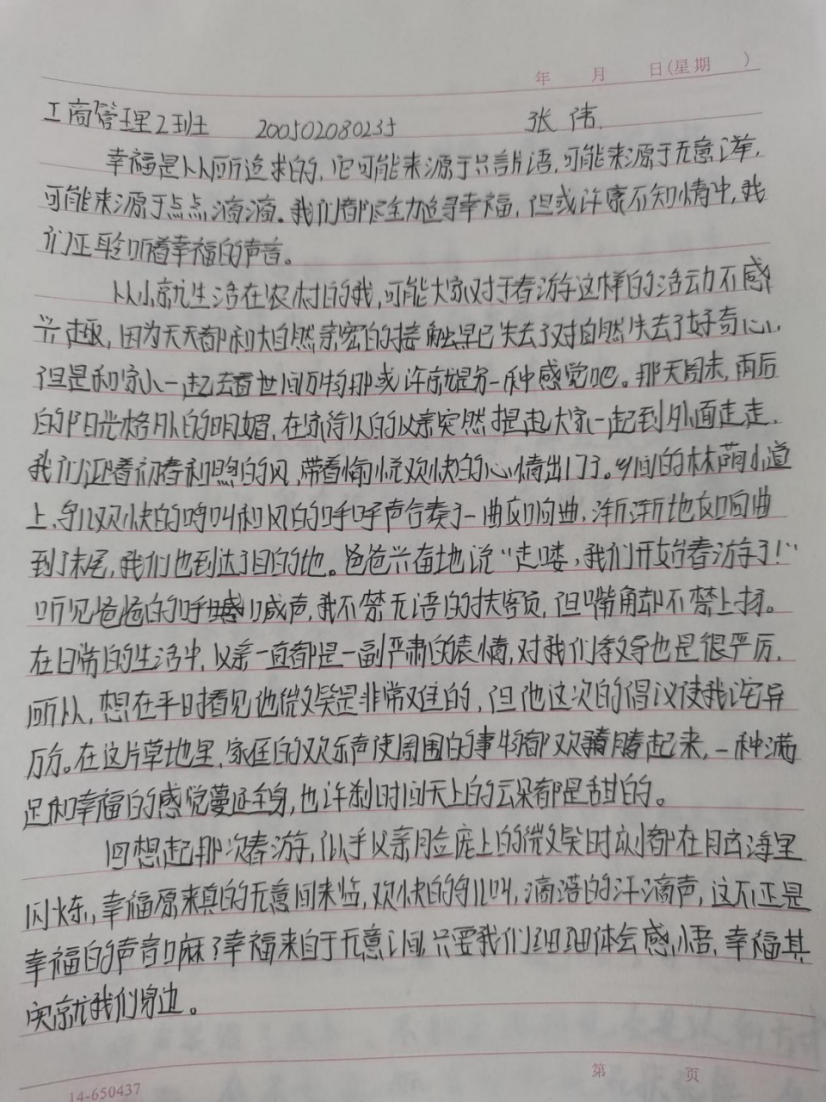 年 月 日(星期 )
工商管理2班 200502080235 张伟
幸福是人们所追求的,它可能来源于只言片语,可能来源于无意之举,
可能来源于点点滴滴。我们都尽全力追寻幸福,但或许原不知情中,我
们正聆听着幸福的声音。
从小就生活在农村的我,可能大家对于春游这样的活动不感
兴趣,因为天天都和大自然亲密的接触早已失去了对自然失去了好奇心,
但是和家人一起去看世间万物那或许就是另一种感觉吧。那天周末,雨后
的阳光格外的明媚,在家待久的父亲突然提起大家一起到外面走走,
我们迎着初春和煦的风,带着愉悦欢快的心情出门了。乡间的林荫小道
上,鸟儿欢快的鸣叫和风的呼呼声合奏了一曲交响曲,渐渐地交响曲
到了末尾,我们也到达了目的地。爸爸兴奋地说“走喽,我们开始春游了!”
听见爸爸的呼喊声,我不禁无语的扶额,但嘴角却不禁上扬。
在日常的生活中,父亲一直都是一副严肃的表情,对我们教导也是很严厉,
所以,想在平时看见他微笑是非常难的,但他这次的倡议使我诧异
万分。在这片草地里,家庭的欢乐声使周围的事物都欢腾起来,一种满
足和幸福的感觉蔓延全身,也许刹时间天上的云朵都是甜的。
回想起那次春游,似乎父亲脸庞上的微笑时刻都在脑海里
闪烁,幸福原来真的无意间来临,欢快的鸟儿叫,滴落的汗滴声,这不正是
幸福的声音嘛?幸福来自于无意之间,只要我们细细体会感悟,幸福其
实就我们身边。
14-650437 第 页